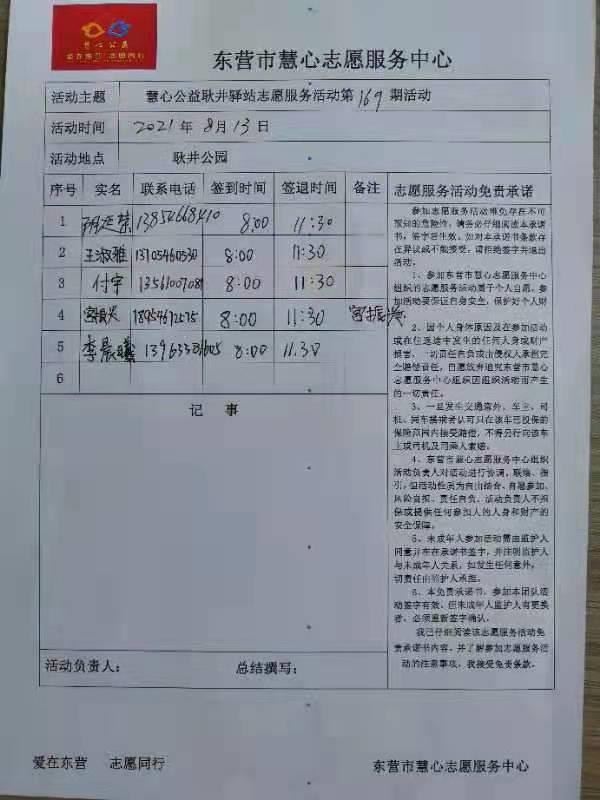 慧心公益
爱在东营 志愿同行
东营市慧心志愿服务中心
活动主题 慧心公益耿井驿站志愿服务活动第169期活动
活动时间 2021年8月13日
活动地点 耿井公园
序号 实名 联系电话 签到时间 签退时间 备注 志愿服务活动免责承诺
1 8:00 11:30
2 王淑雅 13105460530 8:00 11:30
3 付宇 8:00 11:30
4 宫振兴 18954672575 8:00 11:30 宫振兴
5 李晨曦 8:00 11.30
6
记 事
参加志愿服务活动难免存在不可
预知的危险性，请务必仔细阅读本承诺
书，签字后生效。如对本承诺书条款存
在异议或不能接受，请拒绝签字并退出
活动。
1、参加东营市慧心志愿服务中心
组织的志愿服务活动属于个人自愿，参
加活动要保证自身安全，保护好个人财
2、因个人身体原因及在参加活动
或在往返途中发生的任何人身或财产
损害，一切责任自负或由侵权人承担完
全赔偿责任，自愿放弃追究东营市慧心
志愿服务中心组织因组织活动而产生
的一切责任。
3、一旦发生交通意外，车主、司
机、同车搭乘者认可只在该车已投保的
保险范围内接受赔偿，不得另行向该车
主或司机及同乘人索赔。
4、东营市慧心志愿服务中心组织
活动负责人对活动进行协调、联络、指
引，但活动性质为自由结合、自愿参加、
风险自担、责任自负。活动负责人不担
保或提供任何参加人的人身和财产的
安全保障。
5、未成年人参加活动需由监护人
同意并在在承诺书签字，并注明监护人
与未成年人关系，如发生任何意外，一
切责任由监护人承担。
6、本免责承诺书，参加本团队活
动签字有效，但未成年人监护人有更换
者，必须重新签字确认。
我已仔细阅读该志愿服务活动免
责承诺书内容，并了解参加志愿服务活
动的注意事项，我接受免责条款。
活动负责人： 总结撰写：
爱在东营 志愿同行 东营市慧心志愿服务中心